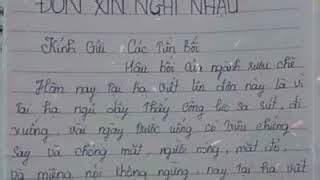 ĐƠN XIN NGHỈ NHẬU
Kính Gửi Các Tiền bối
Hậu bối của ngành rượu chè
Hôm nay tại hạ viết lên đơn này là vì
Tại hạ ngủ dậy Thấy Công lực sa sút, đi
xuống, vài ngày trước uống có triệu chứng
Say và chóng mặt, người nóng, mắt đỏ,
và miệng nói không ngừng, nay tại hạ viết